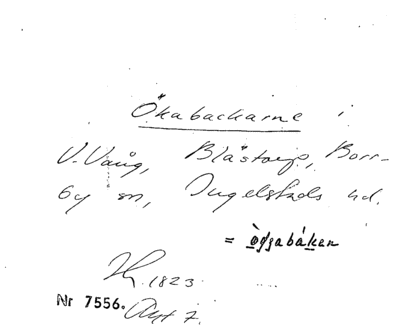 Ökabackarne i
V. Vång, Blästorp, Borr-
by sn, Ingelstads hd.
= ògsabáken
1823
Nr 7556. Akt 7.